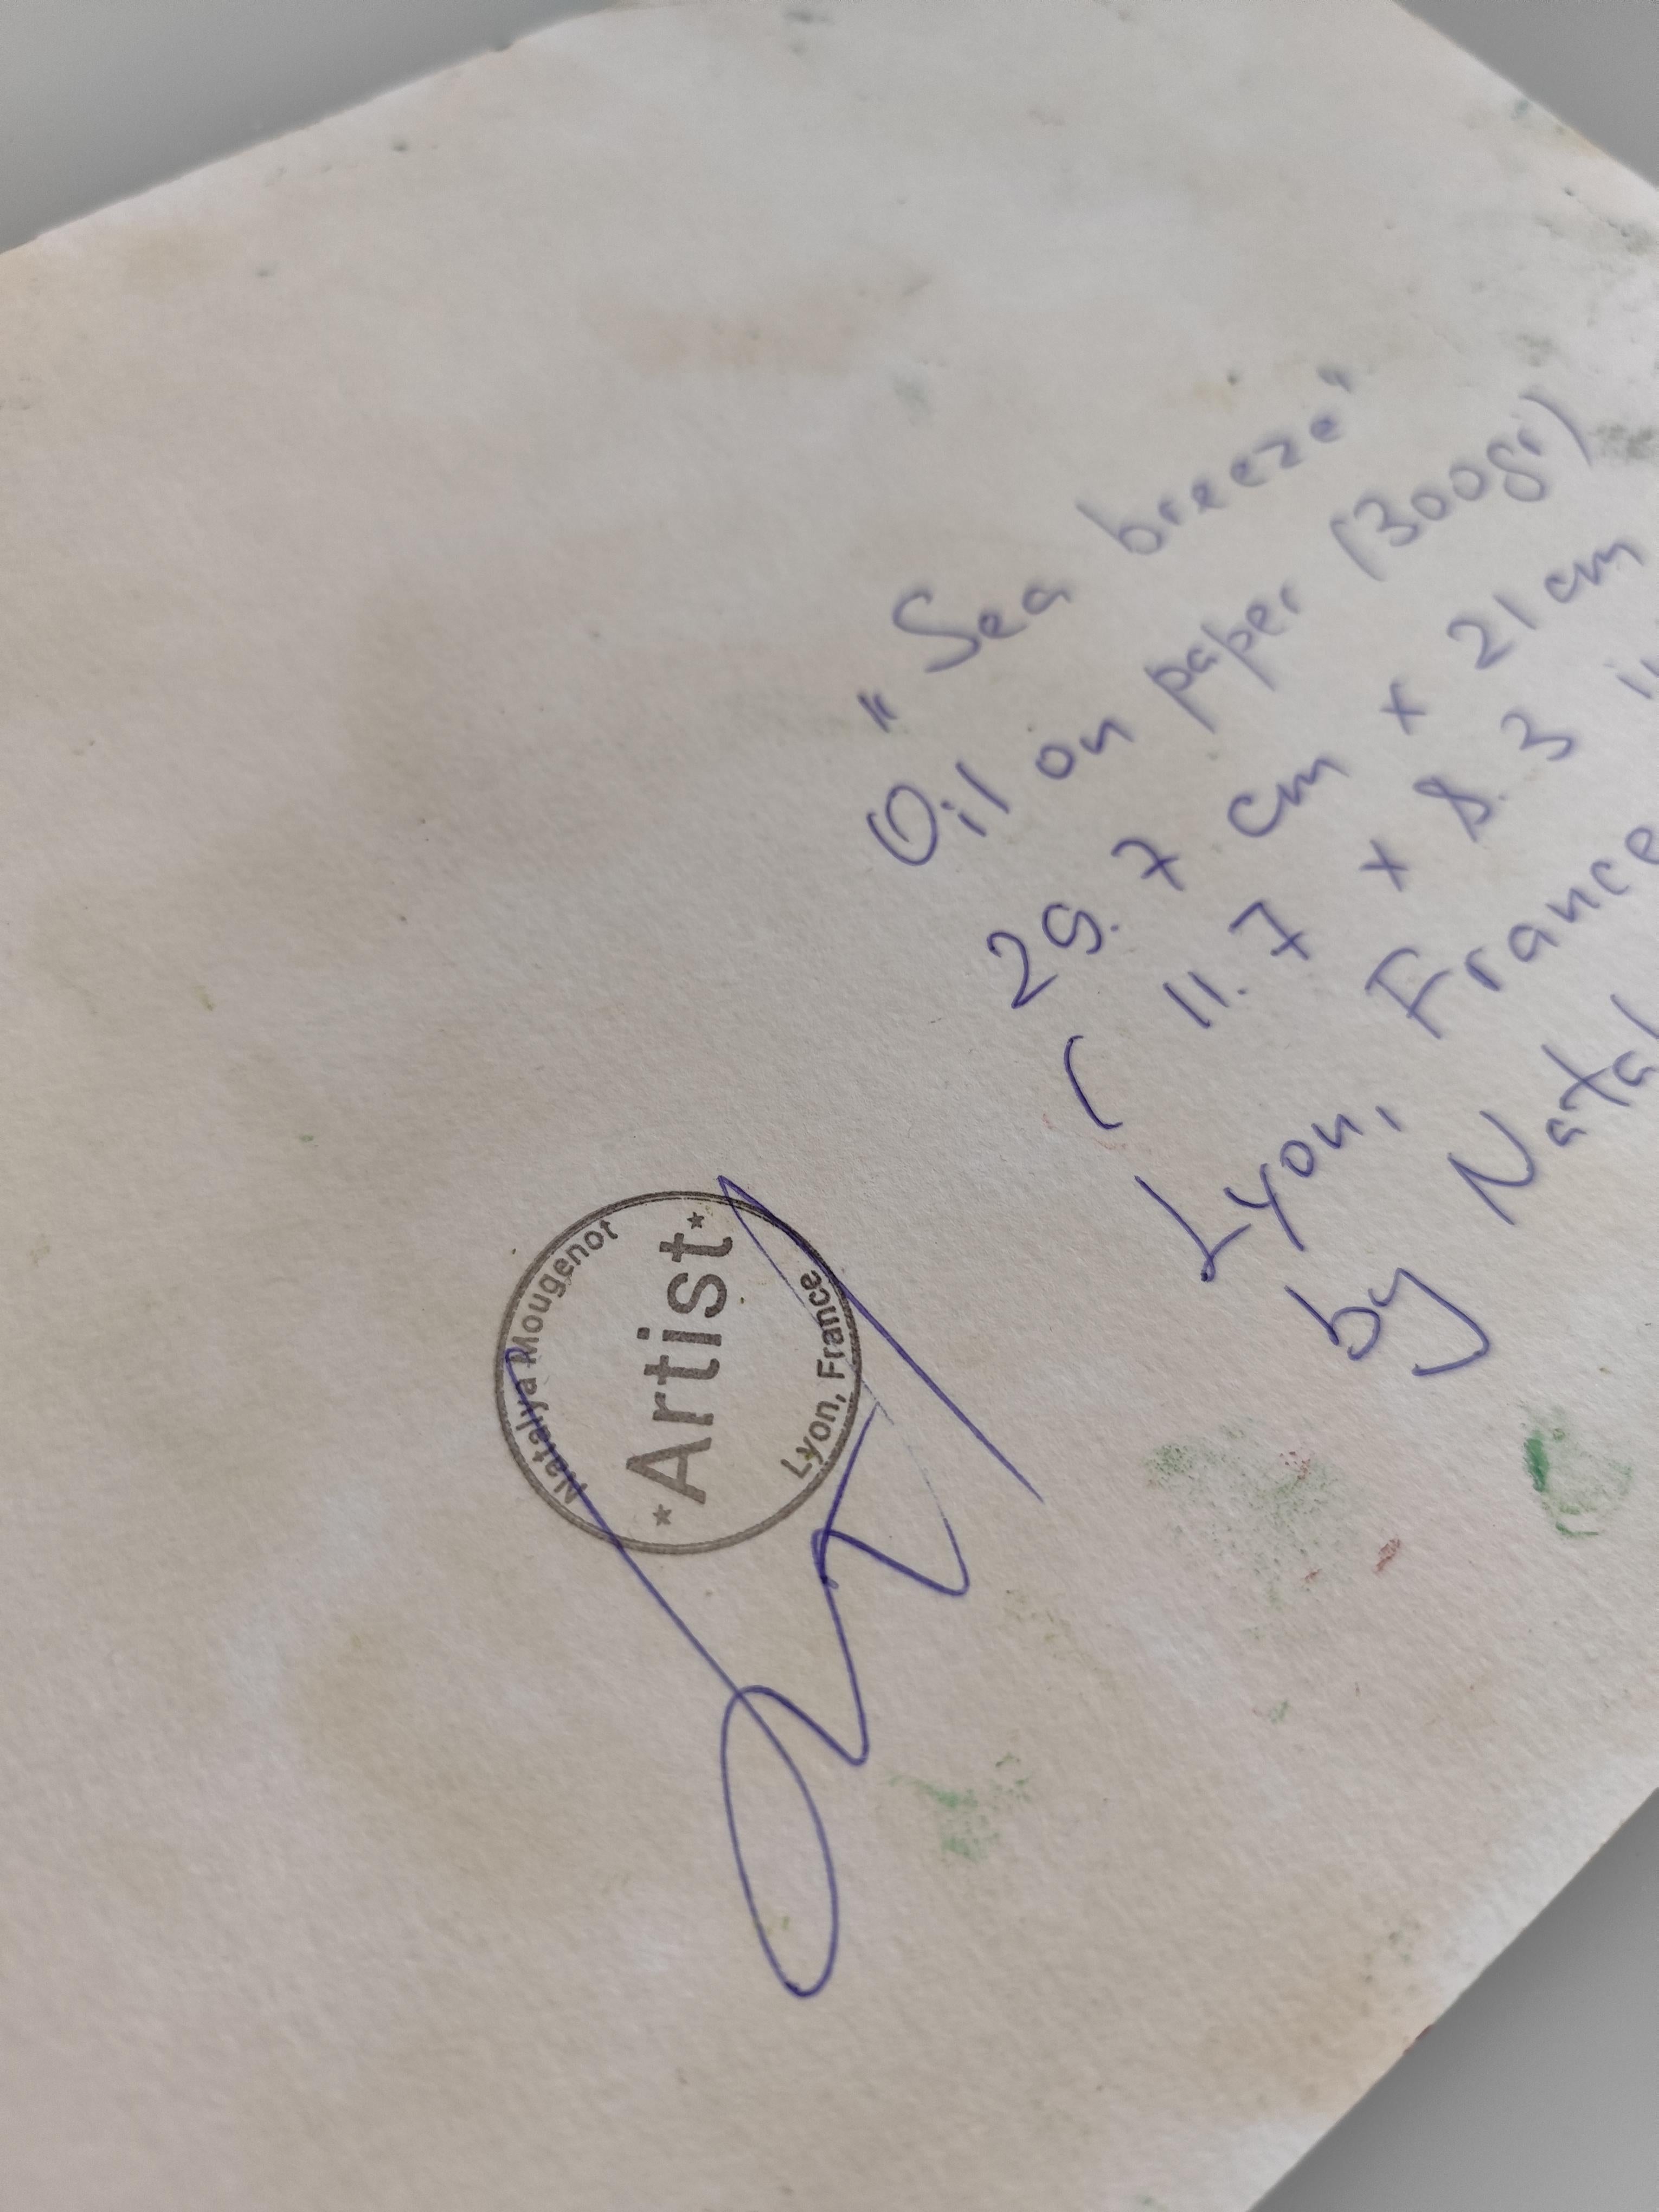 "Sea breeze"
Oil on paper (300gr)
29.7 cm x 21 cm
( 11.7 x 8.3
Lyon, France
by
Natalya Mougenot
Artist
Lyon, France